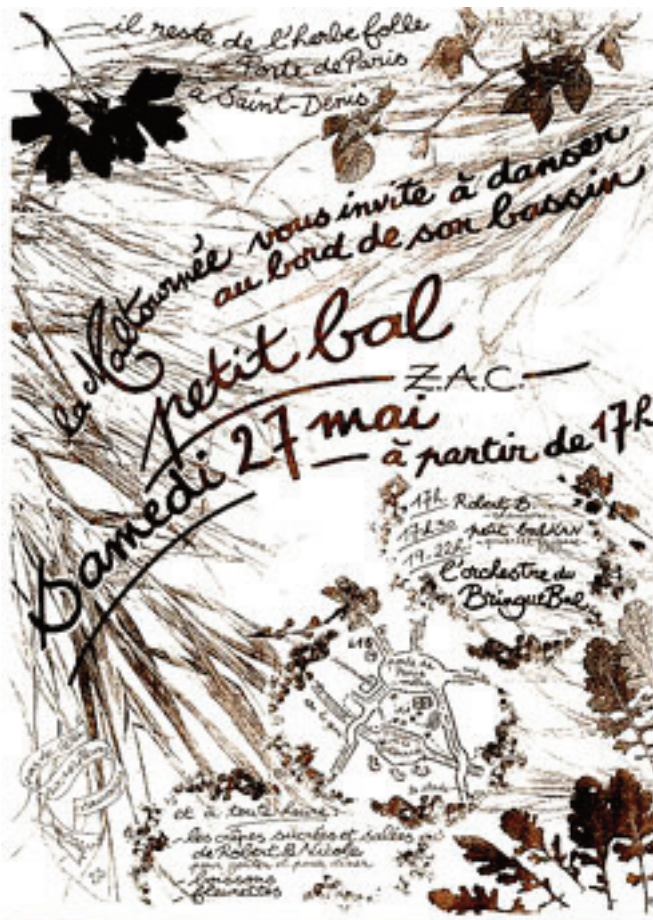 il reste de l'herbe folle
Porte de Paris
à Saint-Denis
la Maltournée vous invite à danser
au bord de son bassin
petit bal
Z.A.C.
samedi 27 mai
à partir de 17h
17h Robert B.
17h30 petit bal
19-22h
L'orchestre du
BringueBal
porte de
Paris
et à toute heure :
- les crêpes sucrées et salées
de Robert & Nicole
pour goûter et pour dîner
- boissons
fleurettes